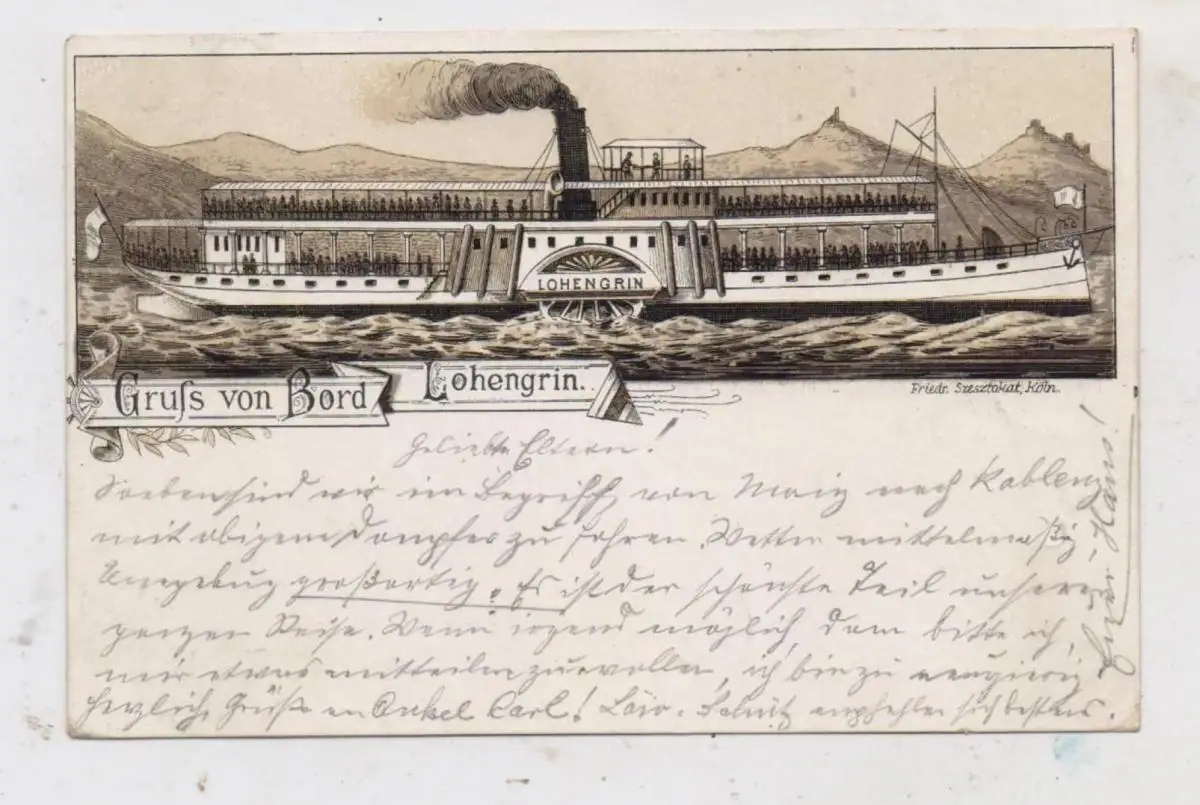 LOHENGRIN
Gruſs von Bord Lohengrin.
Friedr. Szesztokat, Köln.
Geliebte Eltern!
Soeben sind wir im Begriff, von Mainz nach Koblenz
mit obigem Dampfer zu fahren. Wetter mittelmäßig
Umgebung großartig. Es ist der schönste Teil unserer
ganzen Reise. Wenn irgend möglich, dann bitte ich,
mir etwas mitteilen zu wollen, ich bin zu neugierig
Herzliche Grüße an Onkel Carl! empfehlen sich bestens.
Euer Hans!